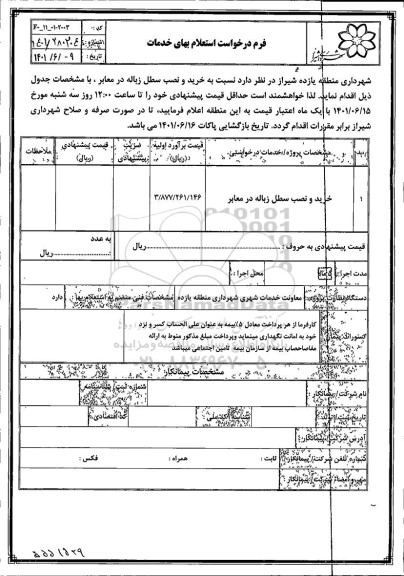 فرم درخواست استعلام بهای خدمات
کد: ۲۰۰۳-۰۱-۱۱-۴۰
شماره:
تاریخ: ۱۴۰۱/۰۶/۰۹
شهرداری منطقه یازده شیراز در نظر دارد نسبت به خرید و نصب سطل زباله در معابر ، با مشخصات جدول
ذیل اقدام نماید. لذا خواهشمند است حداقل قیمت پیشنهادی خود را تا ساعت ۱۲:۰۰ روز سه شنبه مورخ
۱۴۰۱/۰۶/۱۵ با یک ماه اعتبار قیمت به این منطقه اعلام فرمایید، تا در صورت صرفه و صلاح شهرداری
شیراز برابر مقررات اقدام گردد. تاریخ بازگشایی پاکات ۱۴۰۱/۰۶/۱۶ می باشد.
ردیف مشخصات پروژه/خدمات درخواستی قیمت برآورد اولیه (ریال) ضریب پیشنهادی قیمت پیشنهادی (ریال) ملاحظات
۱ خرید و نصب سطل زباله در معابر ۳/۸۷۷/۲۶۱/۱۴۶
قیمت پیشنهادی به حروف: ریال
به عدد ریال
مدت اجرا: محل اجرا:
دستگاه نظارت معاونت خدمات شهری شهرداری منطقه یازده مشخصات فنی منضم به استعلام بها دارد
کسورات کارفرما از هر پرداخت معادل ۵٪بیمه به عنوان علی الحساب کسر و نزد
خود به امانت نگهداری مینماید وپرداخت مبلغ مذکور منوط به ارائه
مفاصاحساب بیمه از سازمان بیمه تامین اجتماعی میباشد
مشخصات پیمانکار
نام شرکت/ پیمانکار: شماره ثبت/ شناسنامه:
تاریخ ثبت/تولد: شناسه/کدملی: کد اقتصادی:
آدرس شرکت/ پیمانکار:
شماره تلفن شرکت/ پیمانکار: ثابت : همراه : فکس :
مهر و امضاء شرکت/ پیمانکار: